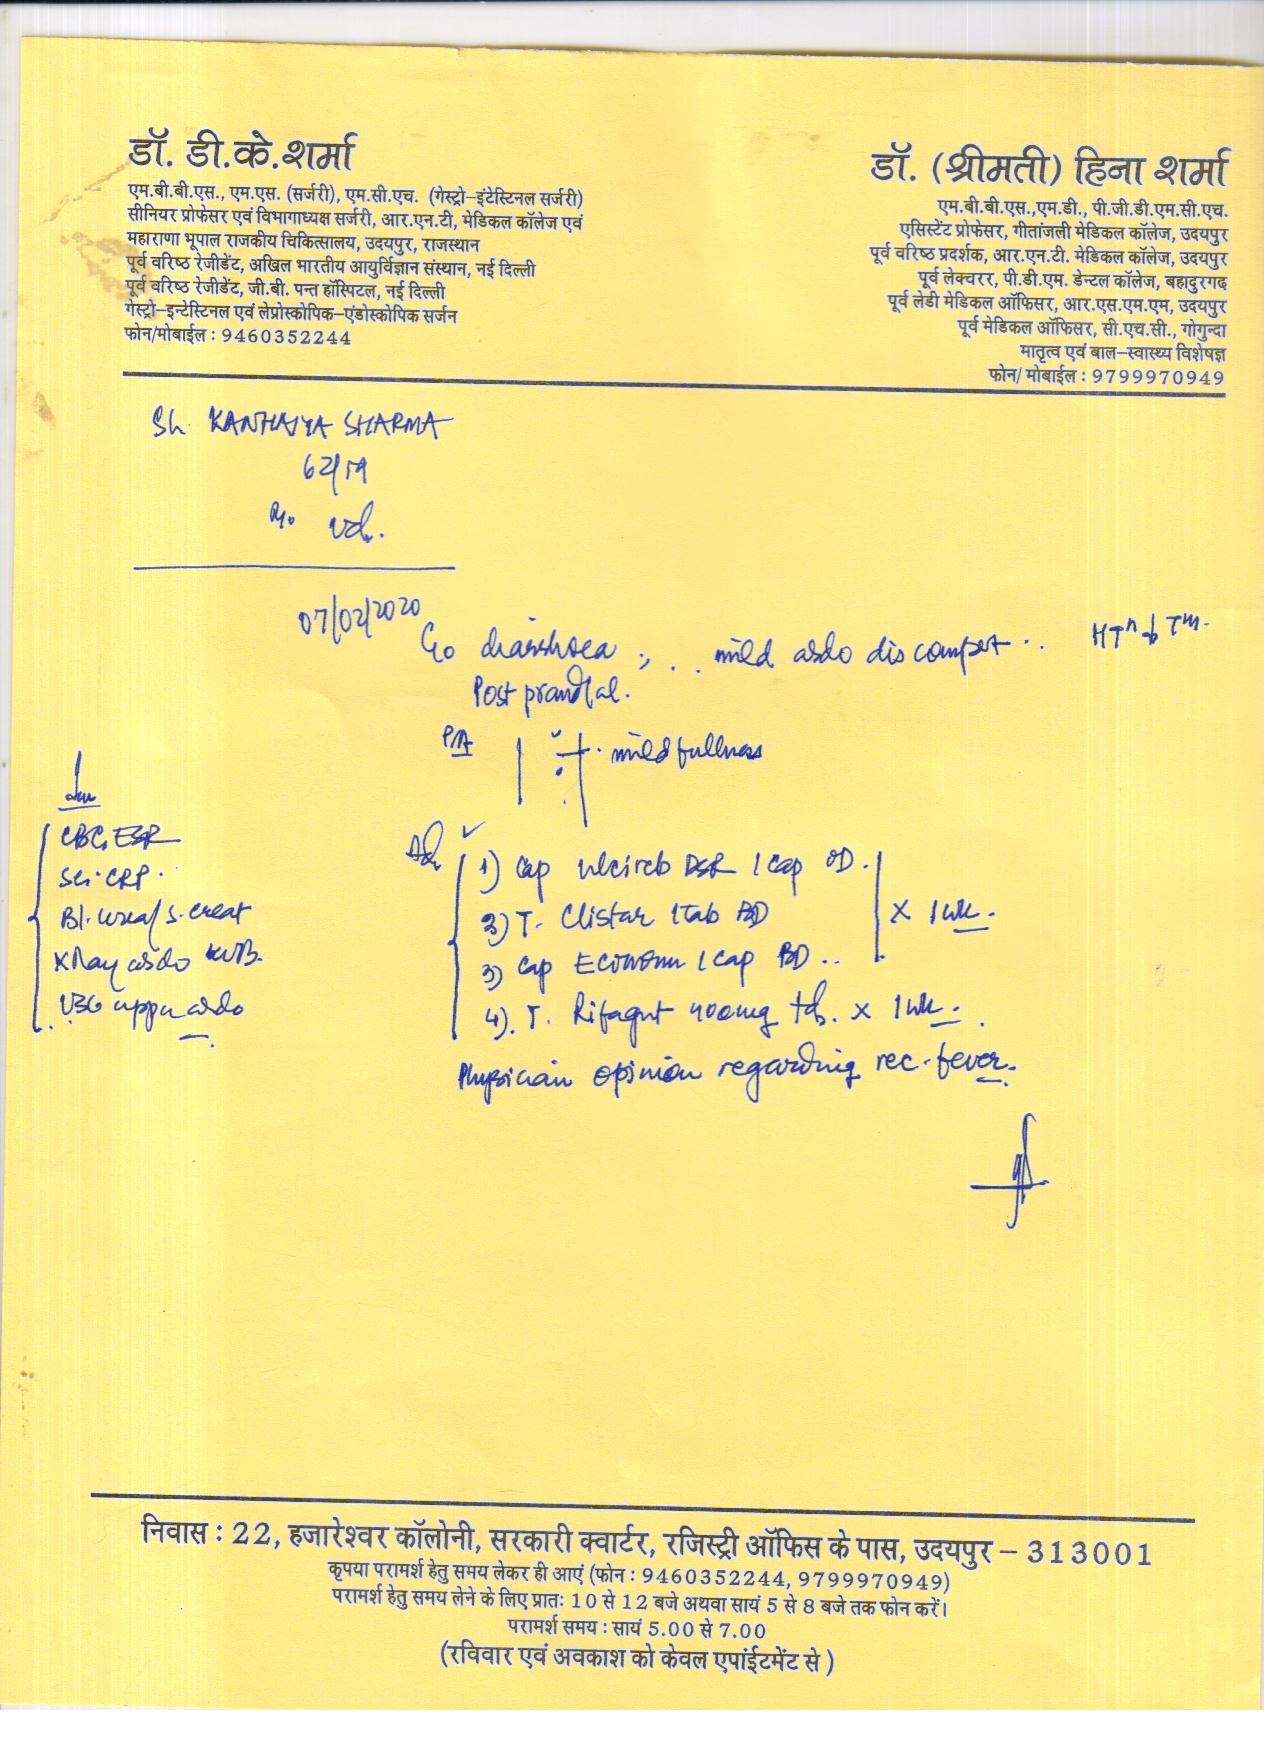 डॉ. डी.के.शर्मा
एम.बी.बी.एस., एम.एस. (सर्जरी), एम.सी.एच. (गेस्ट्रो-इंटेस्टिनल सर्जरी)
सीनियर प्रोफेसर एवं विभागाध्यक्ष सर्जरी, आर.एन.टी, मेडिकल कॉलेज एवं
महाराणा भूपाल राजकीय चिकित्सालय, उदयपुर, राजस्थान
पूर्व वरिष्ठ रेजीडेंट, अखिल भारतीय आयुर्विज्ञान संस्थान, नई दिल्ली
पूर्व वरिष्ठ रेजीडेंट, जी.बी. पन्त हॉस्पिटल, नई दिल्ली
गेस्ट्रो-इन्टेस्टिनल एवं लेप्रोस्कोपिक-एंडोस्कोपिक सर्जन
फोन/मोबाईल : 9460352244
डॉ. (श्रीमती) हिना शर्मा
एम.बी.बी.एस.,एम.डी., पी.जी.डी.एम.सी.एच.
एसिस्टेंट प्रोफेसर, गीतांजली मेडिकल कॉलेज, उदयपुर
पूर्व वरिष्ठ प्रदर्शक, आर.एन.टी. मेडिकल कॉलेज, उदयपुर
पूर्व लेक्चरर, पी.डी.एम. डेन्टल कॉलेज, बहादुरगढ
पूर्व लेडी मेडिकल ऑफिसर, आर.एस.एम.एम, उदयपुर
पूर्व मेडिकल ऑफिसर, सी.एच.सी., गोगुन्दा
मातृत्व एवं बाल-स्वास्थ्य विशेषज्ञ
फोन/ मोबाईल : 9799970949
Sh. KANHAIYA SHARMA
62/M
R/o
07/02/2020
C/o diarrhoea ; .. mild abdo discomfort ..
Post prandial.
P/A
mild fullness
CBC, ESR
CRP.
Bl. urea/ S. creat
X Ray abdo KUB.
USG upper abdo
Adv
1) Cap DSR 1 cap OD.
2) T. Clistar 1 tab BD
3) Cap Econorm 1 cap BD ..
x 1 wk.
4). T. Rifagut 400mg tds. x 1 wk.
Physician opinion regarding rec. fever.
निवास : 22, हजारेश्वर कॉलोनी, सरकारी क्वार्टर, रजिस्ट्री ऑफिस के पास, उदयपुर - 313001
कृपया परामर्श हेतु समय लेकर ही आएं (फोन : 9460352244, 9799970949)
परामर्श हेतु समय लेने के लिए प्रातः 10 से 12 बजे अथवा सायं 5 से 8 बजे तक फोन करें।
परामर्श समय : सायं 5.00 से 7.00
(रविवार एवं अवकाश को केवल एपांईटमेंट से )